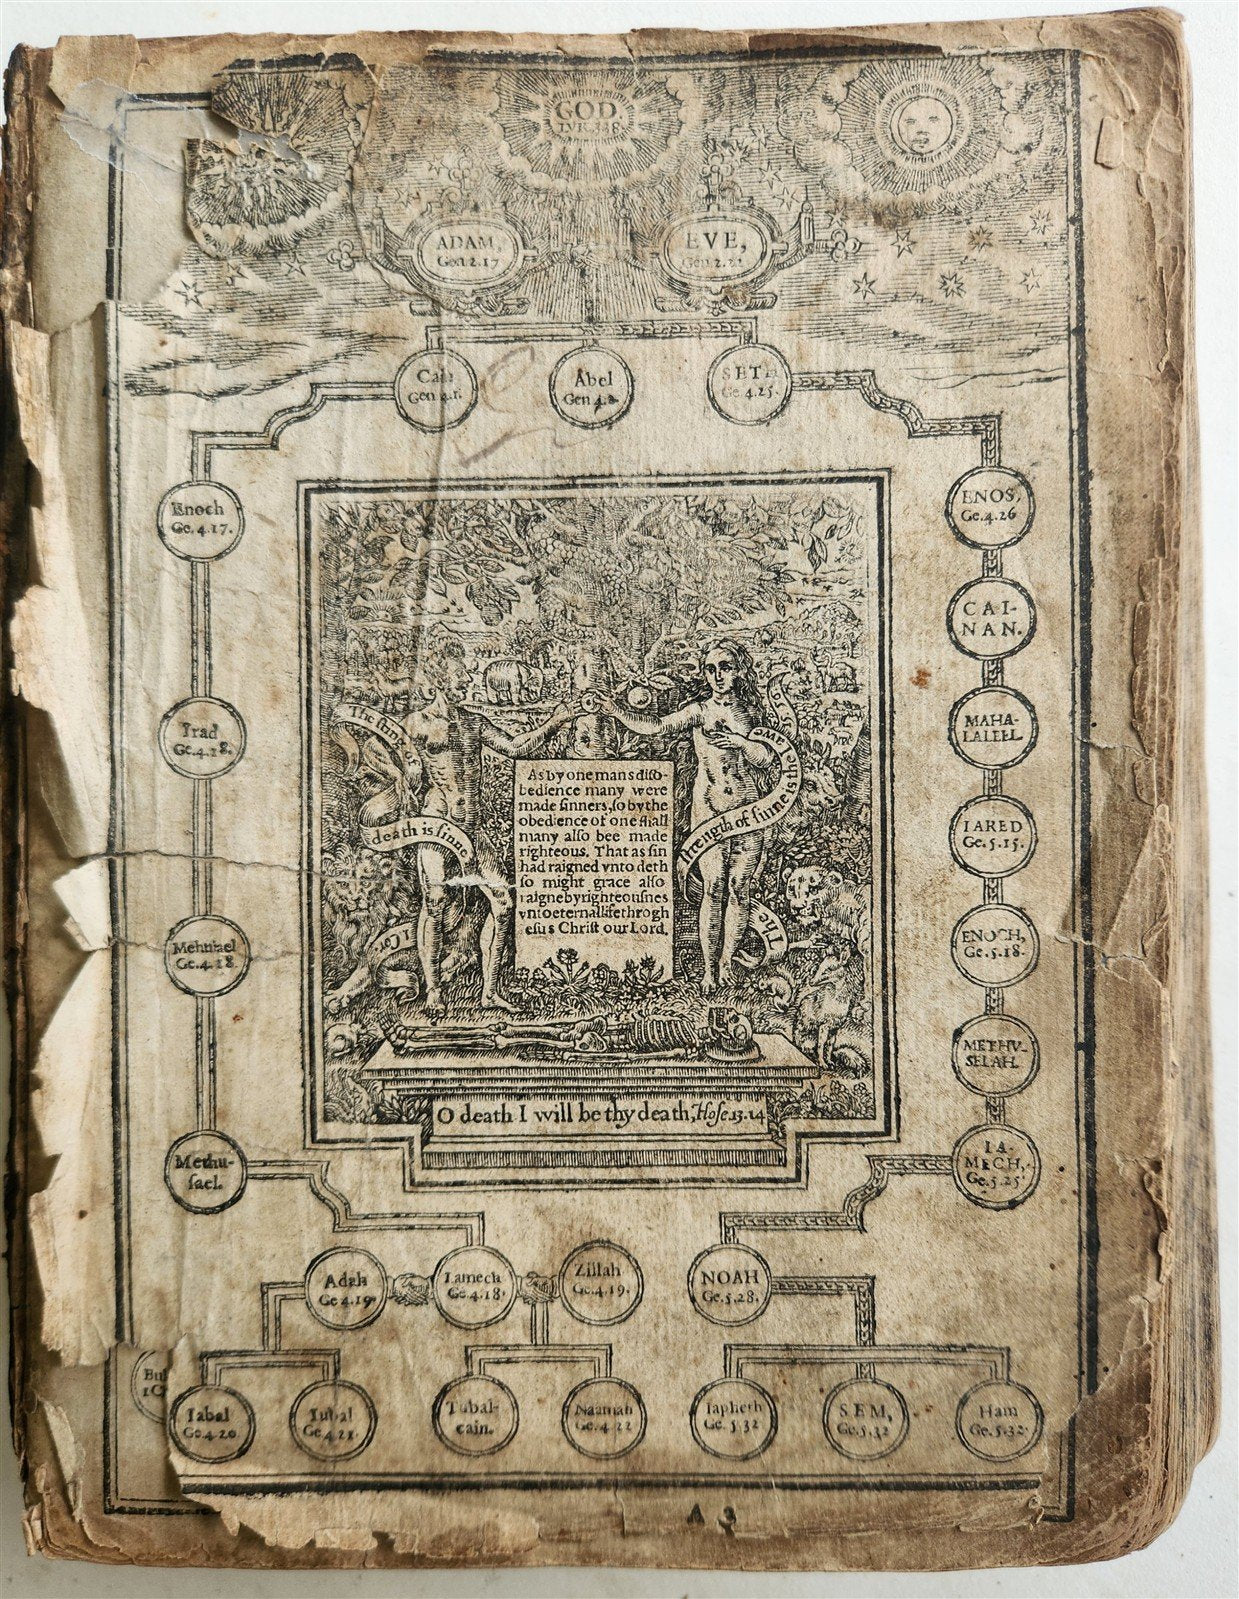 GOD.
ADAM,
Gen 2.17
EVE,
Gen 2.22
Cain
Gen 4.1.
Abel
Gen 4.2.
SETH
Ge 4.25.
Enoch
Ge. 4.17.
ENOS,
Ge. 4.26
CAI-
NAN.
Irad
Ge. 4.18.
MAHA-
LALEEL
IARED
Ge. 5.15.
Mehuiael
Ge. 4.18.
ENOCH,
Ge. 5.18.
METHV-
SELAH.
Methu-
sael.
IA-
MECH,
Ge. 5.25
The sting of
death is sinne
I Cor.
The
strength of sinne is the
lawe
15.56
As by one mans diso-
bedience many were
made sinners, so by the
obedience of one shall
many also bee made
righteous. That as sin
had raigned vnto deth
so might grace also
raigne by righteousnes
vnto eternall life throgh
esus Christ our Lord.
O death I will be thy death, Hose 13.14
Adah
Ge 4.19.
Lamech
Ge. 4.18.
Zillah
Ge. 4.19.
NOAH
Ge. 5.28.
Iabal
Ge. 4.20.
Iubal
Ge. 4.21.
Tubal-
cain.
Naamah
Ge. 4.22
Iapheth
Ge. 5.32
SEM,
Ge. 5.32
Ham
Ge. 5.32.
A 3